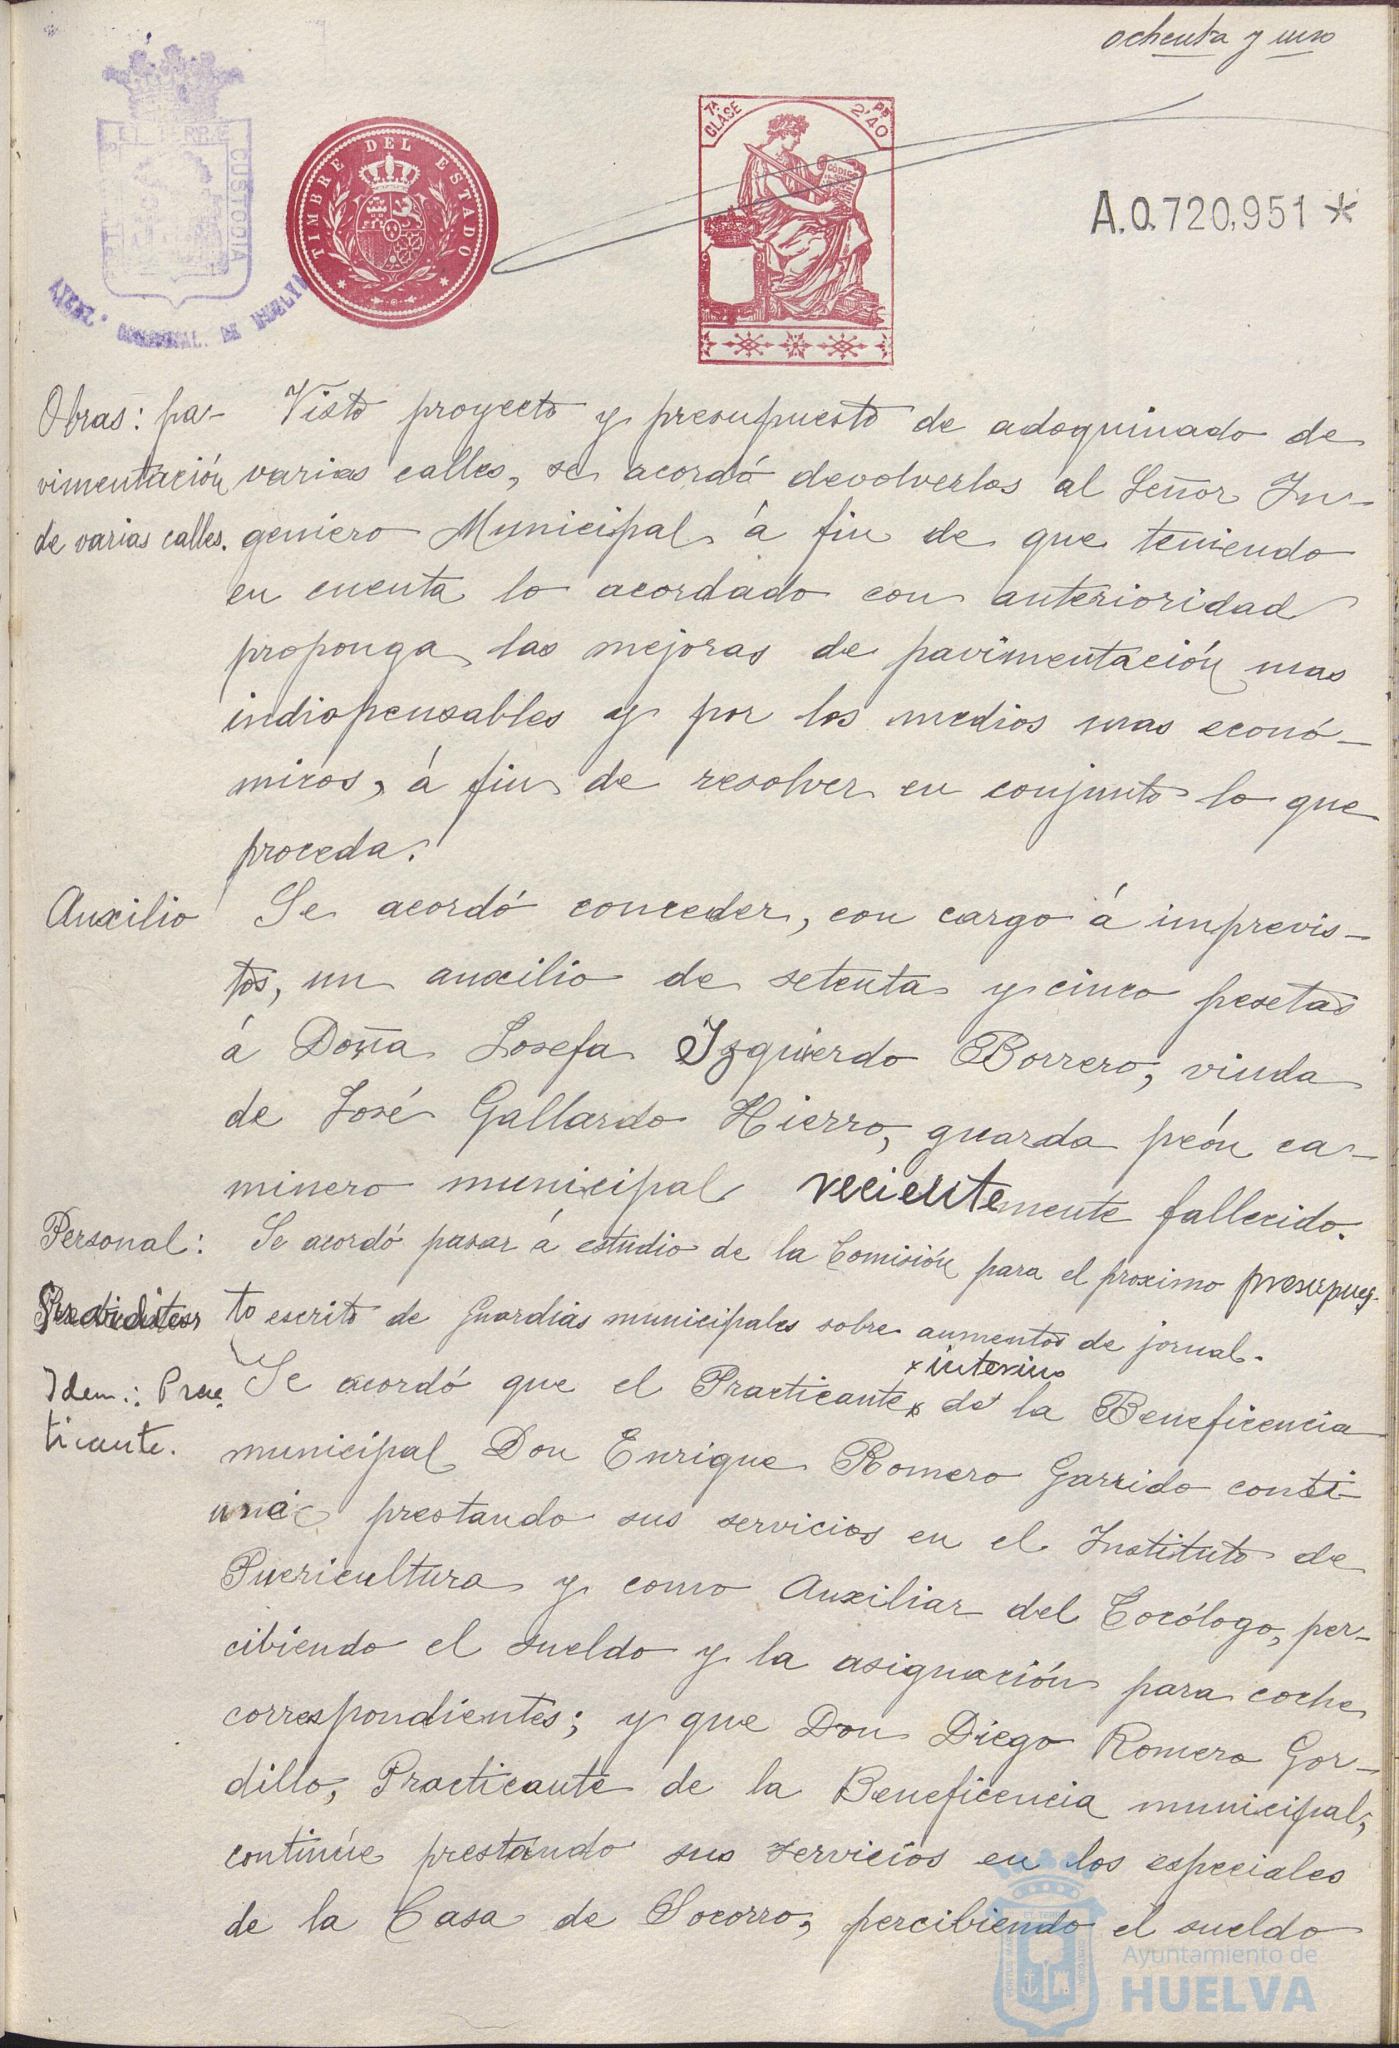 ochenta y uno
TIMBRE DEL ESTADO
7ª CLASE
2'40 Pts
CODIGO
CUSTODIA
A.0.720,951 *
Obras: pa-
vimentación
de varias calles.
Visto proyecto y presupuesto de adoquinado de
varias calles, se acordó devolverlos al Señor In-
geniero Municipal á fin de que teniendo
en cuenta lo acordado con anterioridad
proponga las mejoras de pavimentación mas
indispensables y por los medios mas econó-
micos, á fin de resolver en conjunto lo que
proceda.
Auxilio
Se acordó conceder, con cargo á imprevis-
tos, un auxilio de setenta y cinco pesetas
á Doña Josefa Izquierdo Borrero, viuda
de José Gallardo Hierro, guarda peón ca-
minero municipal recientemente fallecido.
Personal:
Se acordó pasar á estudio de la Comisión para el proximo presupues-
to escrito de Guardias municipales sobre aumentos de jornal.
Idem: Prac-
ticante.
x interino
Se acordó que el Practicante x de la Beneficencia
municipal Don Enrique Romero Garrido conti-
núe prestando sus servicios en el Instituto de
Puericultura y como Auxiliar del Tocólogo, per-
cibiendo el sueldo y la asignación para coche
correspondientes; y que Don Diego Romero Gor-
dillo, Practicante de la Beneficencia municipal,
continúe prestando sus servicios en los especiales
de la Casa de Socorro, percibiendo el sueldo
Ayuntamiento de
HUELVA